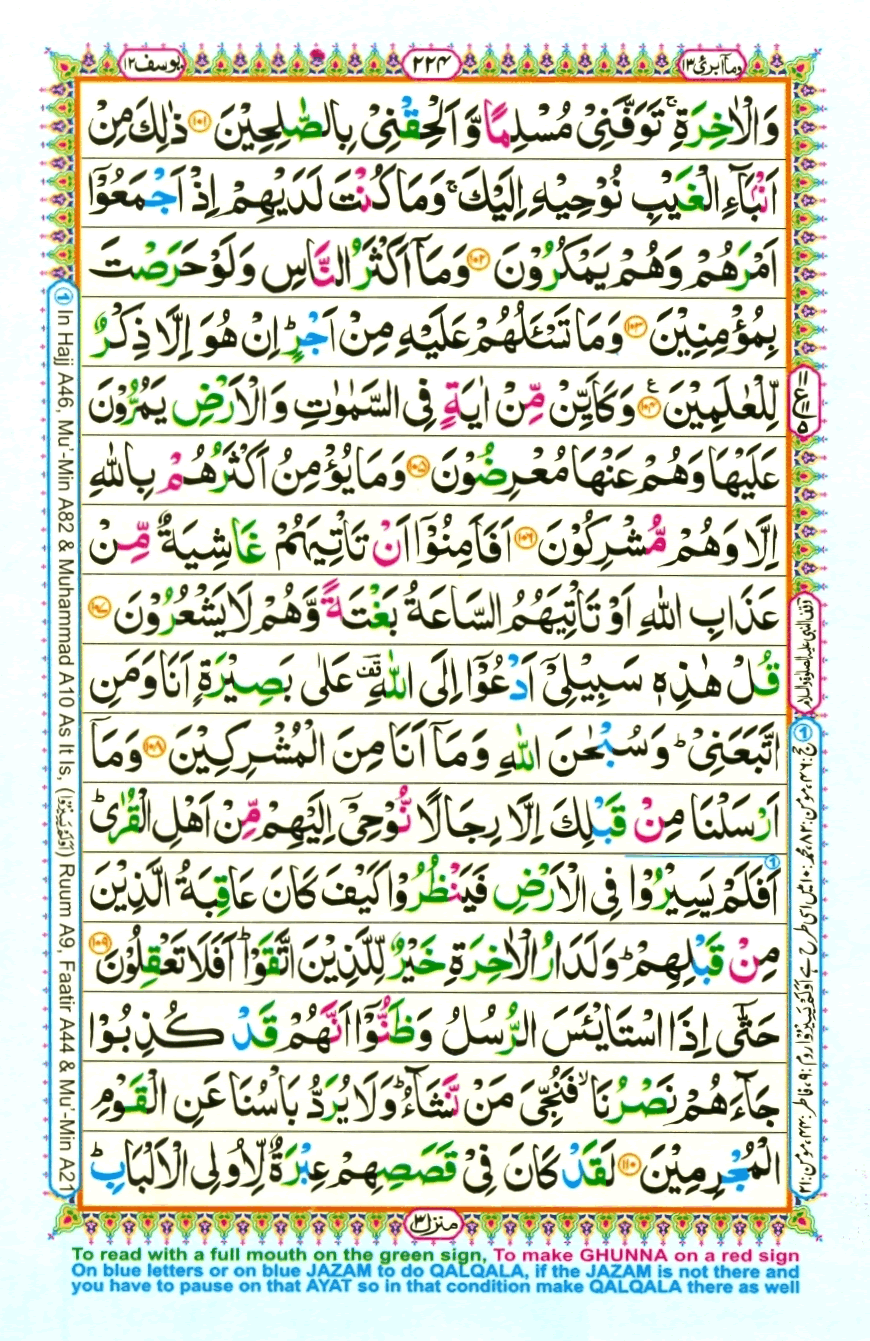 وماۤ ابرئ ١٣
٢٢٤
يوسف ١٢
وَالْاٰخِرَةِ ۚ تَوَفَّنِىْ مُسْلِمًا وَّاَلْحِقْنِىْ بِالصّٰلِحِيْنَ ﴿١٠١﴾ ذٰلِكَ مِنْ
اَنْۢبَآءِ الْغَيْبِ نُوْحِيْهِ اِلَيْكَ ۚ وَمَا كُنْتَ لَدَيْهِمْ اِذْ اَجْمَعُوْۤا
اَمْرَهُمْ وَهُمْ يَمْكُرُوْنَ ﴿١٠٢﴾ وَمَاۤ اَكْثَرُ النَّاسِ وَلَوْ حَرَصْتَ
بِمُؤْمِنِيْنَ ﴿١٠٣﴾ وَمَا تَسْـَٔلُهُمْ عَلَيْهِ مِنْ اَجْرٍ ؕ اِنْ هُوَ اِلَّا ذِكْرٌ
لِّلْعٰلَمِيْنَ ﴿١٠٤﴾ ع وَكَاَيِّنْ مِّنْ اٰيَةٍ فِى السَّمٰوٰتِ وَالْاَرْضِ يَمُرُّوْنَ
عَلَيْهَا وَهُمْ عَنْهَا مُعْرِضُوْنَ ﴿١٠٥﴾ وَمَا يُؤْمِنُ اَكْثَرُهُمْ بِاللّٰهِ
اِلَّا وَهُمْ مُّشْرِكُوْنَ ﴿١٠٦﴾ اَفَاَمِنُوْۤا اَنْ تَاْتِيَهُمْ غَاشِيَةٌ مِّنْ
عَذَابِ اللّٰهِ اَوْ تَاْتِيَهُمُ السَّاعَةُ بَغْتَةً وَّهُمْ لَا يَشْعُرُوْنَ ﴿١٠٧﴾
قُلْ هٰذِهٖ سَبِيْلِىْۤ اَدْعُوْۤا اِلَى اللّٰهِ ؔقف عَلٰى بَصِيْرَةٍ اَنَا وَمَنِ
اتَّبَعَنِىْ ؕ وَسُبْحٰنَ اللّٰهِ وَمَاۤ اَنَا مِنَ الْمُشْرِكِيْنَ ﴿١٠٨﴾ وَمَاۤ
اَرْسَلْنَا مِنْ قَبْلِكَ اِلَّا رِجَالًا نُّوْحِىْۤ اِلَيْهِمْ مِّنْ اَهْلِ الْقُرٰى ؕ
اَفَلَمْ يَسِيْرُوْا فِى الْاَرْضِ فَيَنْظُرُوْا كَيْفَ كَانَ عَاقِبَةُ الَّذِيْنَ
مِنْ قَبْلِهِمْ ؕ وَلَدَارُ الْاٰخِرَةِ خَيْرٌ لِّلَّذِيْنَ اتَّقَوْا ؕ اَفَلَا تَعْقِلُوْنَ ﴿١٠٩﴾
حَتّٰۤى اِذَا اسْتَايْـَٔسَ الرُّسُلُ وَظَنُّوْۤا اَنَّهُمْ قَدْ كُذِبُوْا
جَآءَهُمْ نَصْرُنَا ۙ فَنُجِّىَ مَنْ نَّشَآءُ ؕ وَلَا يُرَدُّ بَاْسُنَا عَنِ الْقَوْمِ
الْمُجْرِمِيْنَ ﴿١١٠﴾ لَقَدْ كَانَ فِىْ قَصَصِهِمْ عِبْرَةٌ لِّاُولِى الْاَلْبَابِ ؕ
منزل ٣
① In Hajj A46, Mu'-Min A82 & Muhammad A10 As It Is, (اَوَلَمْ يَسِيْرُوْا) Ruum A9, Faatir A44 & Mu'-Min A21
وقف النبی علیہ الصلوٰۃ والسلام
① حج:٤٦، مومن:٨٢، محمد:١٠ میں اسی طرح ہے اَوَلَمْ يَسِيْرُوْا روم:٩، فاطر:٤٤، مومن:٢١
To read with a full mouth on the green sign, To make GHUNNA on a red sign
On blue letters or on blue JAZAM to do QALQALA, if the JAZAM is not there and
you have to pause on that AYAT so in that condition make QALQALA there as well